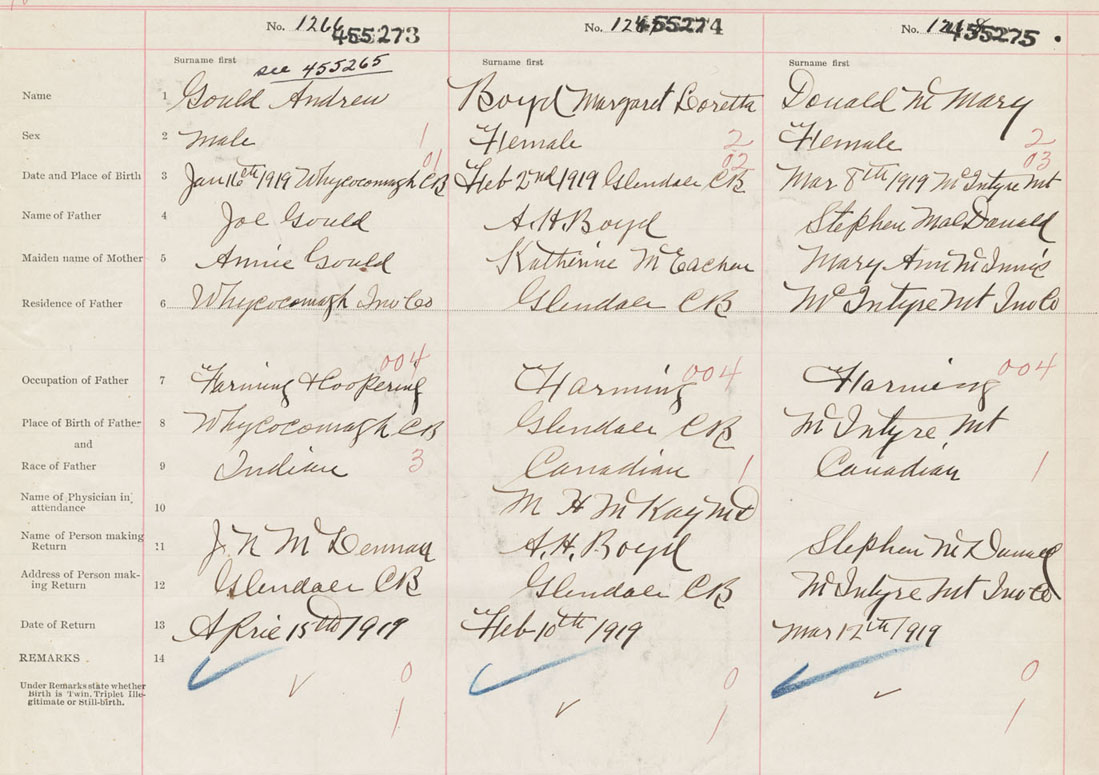 No. 1266 455273 No. 455274 No. 455275
Surname first Surname first Surname first
see 455265
Name 1 Gould Andrew Boyd Margaret Loretta Donald Mc Mary
Sex 2 male 1 Female 2 Female 2
01 02 03
Date and Place of Birth 3 Jan 16th 1919 Whycocomagh CB Feb 2nd 1919 Glendale CB Mar 8th 1919 McIntyre Mt
Name of Father 4 Joe Gould A. H. Boyd Stephen MacDonald
Maiden name of Mother 5 Annie Gould Katherine McEachen Mary Ann McInnis
Residence of Father 6 Whycocomagh Inv Co Glendale CB McIntyre Mt Inv Co
004 004 004
Occupation of Father 7 Farming & Coopering Farming Farming
Place of Birth of Father 8 Whycocomagh CB Glendale CB McIntyre Mt
and
Race of Father 9 Indian 3 Canadian 1 Canadian 1
Name of Physician in
attendance 10 M H McKay MD
Name of Person making
Return 11 J. N McLennan A. H. Boyd Stephen McDonald
Address of Person mak-
ing Return 12 Glendale CB Glendale CB McIntyre Mt Inv Co
Date of Return 13 Aprie 15th 1919 Feb 10th 1919 Mar 12th 1919
REMARKS 14 0 0 0
Under Remarks state whether
Birth is Twin, Triplet Ille-
gitimate or Still-birth.
1 1 1